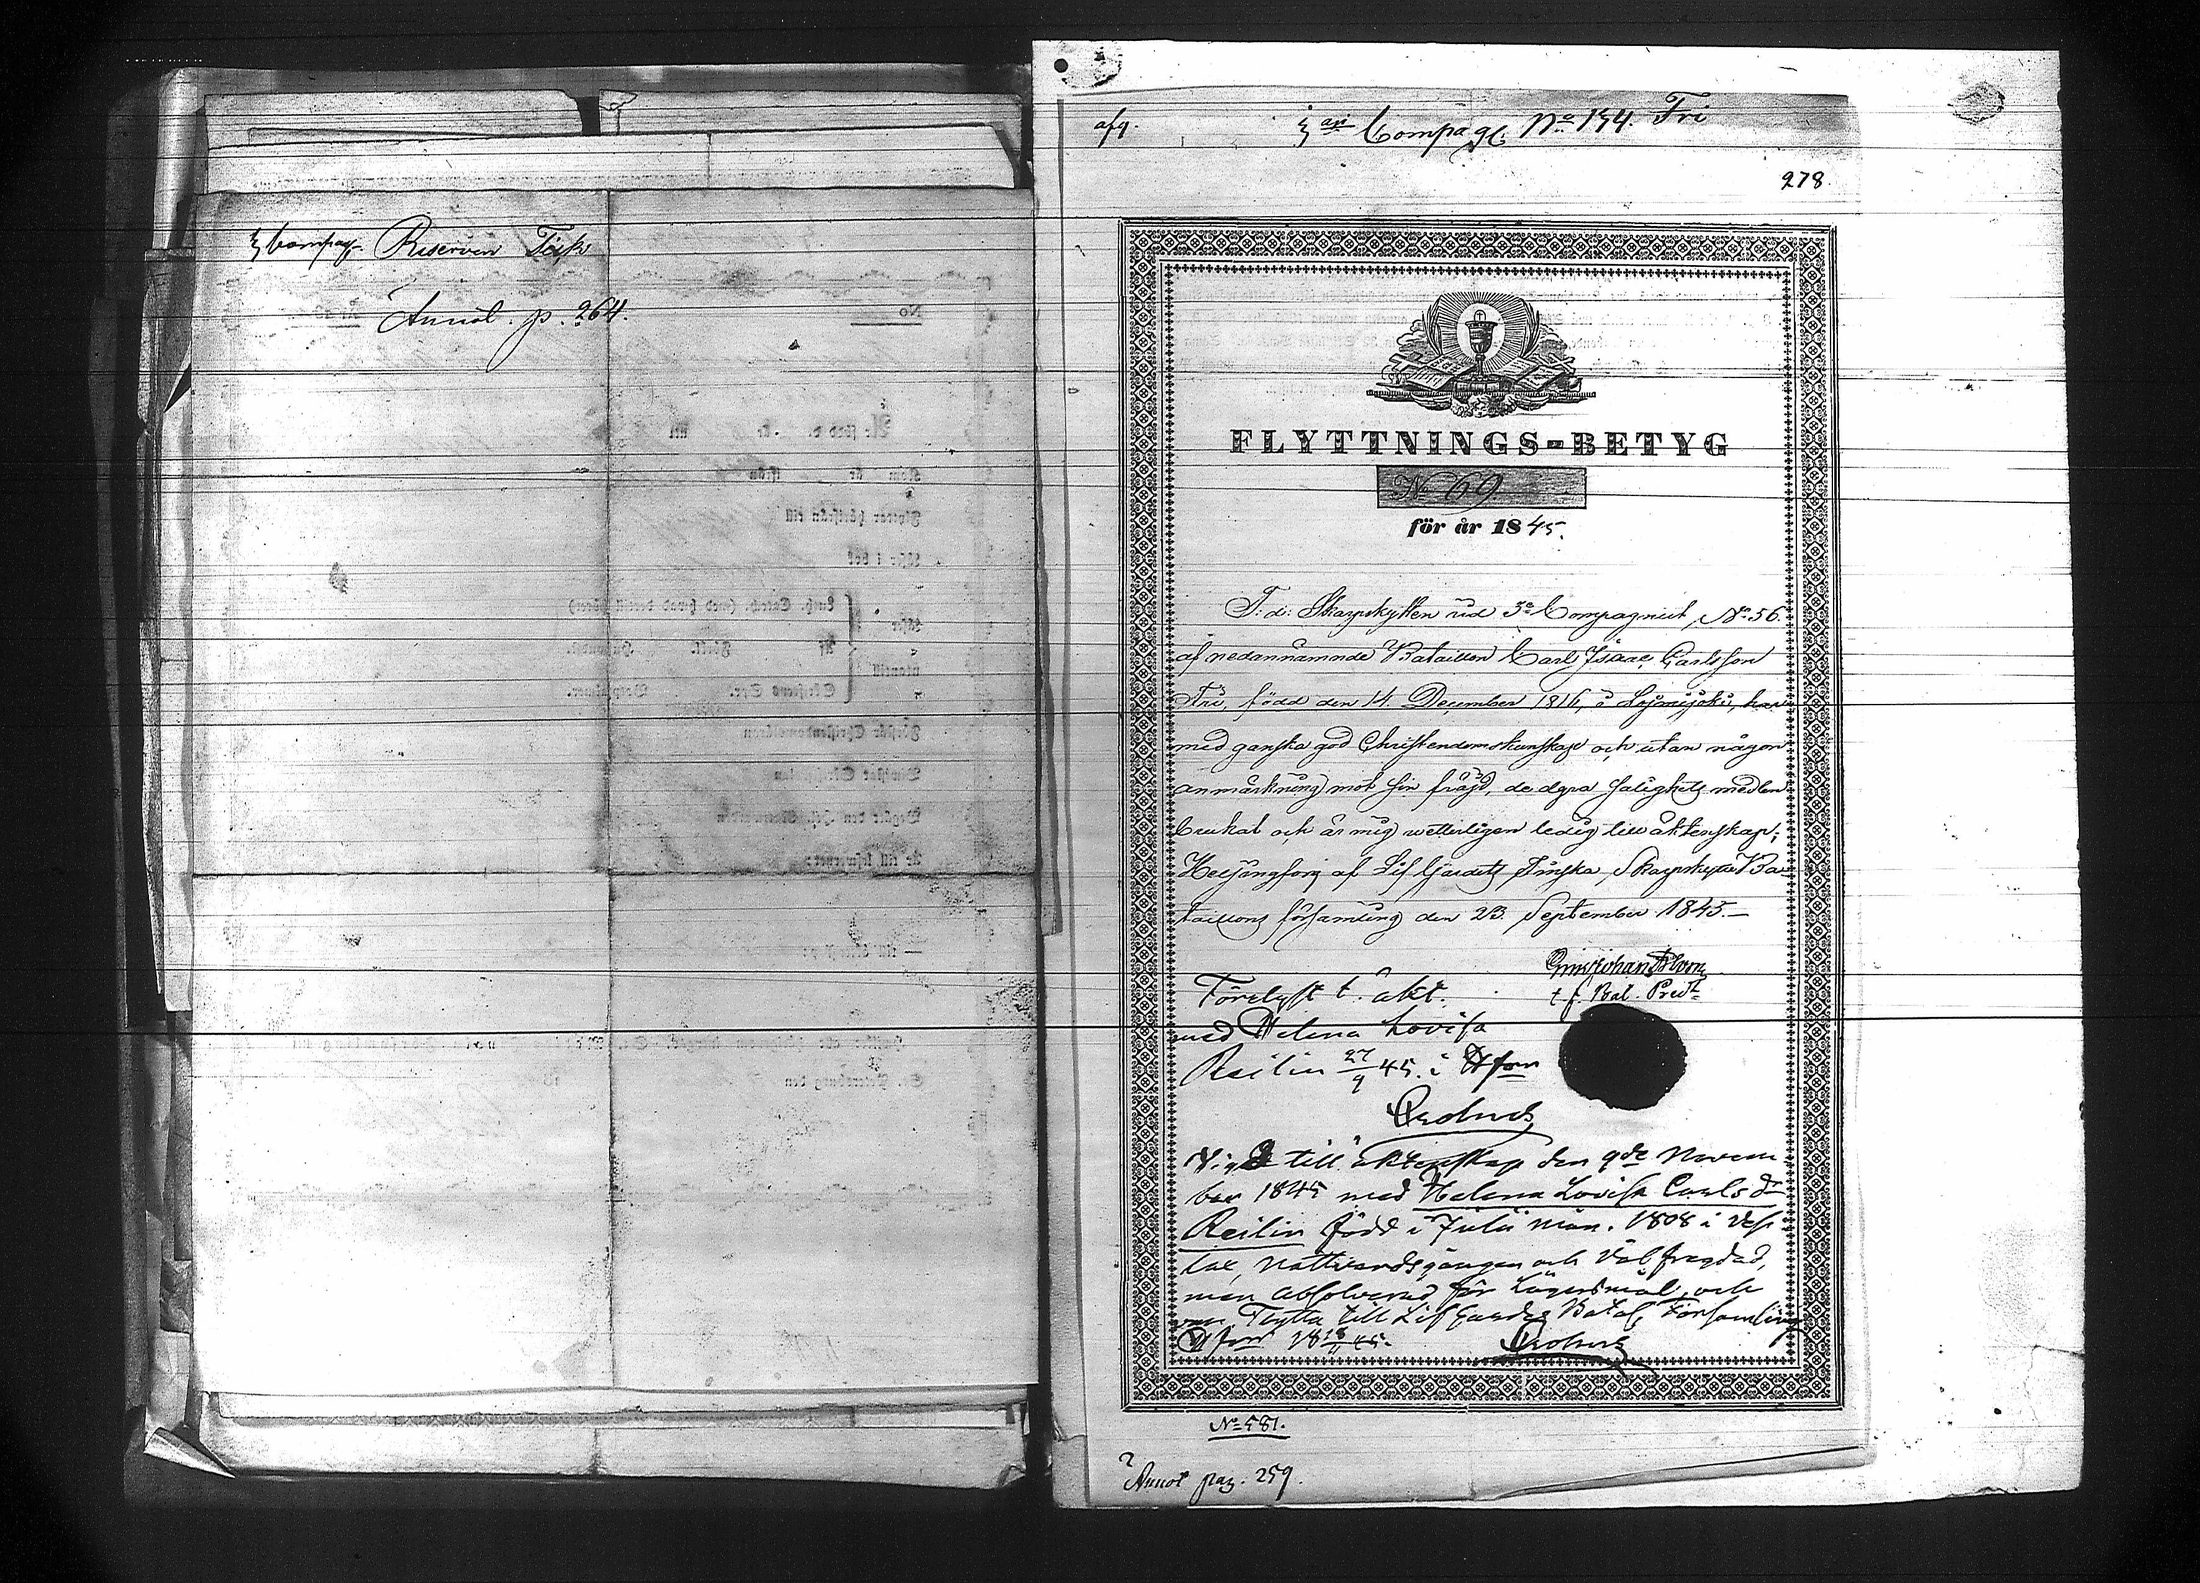 Compag. Reserven
Annot. p. 264.
afg.
Compag. No 154. Fri
278.
FLYTTNINGS-BETYG
No 69
för år 1845.
T: d: Skarpskytten vid 3e Compagniet, No 56.
af nedannämnde Bataillon Carl Isaac Carlsson
Fri, född den 14. December 1816, i Loimijoki, har
med ganska god Christendomskunskap och utan någon
anmärkning mot sin fräjd, de dyra salighets medlen
brukat och är mig vetterligen ledig till äktenskap;
Helsingfors af Lif Gardets Finska Skarpskytte Ba-
taillons församling den 23. September 1845.—
t. f. Bat. Pred.
Förelyst t. äkt.
med Helena Lovisa
Reilin 27/9 45. i Hfors
Vigd till äktenskap den 9de Novem-
ber 1845 med Helena Lovisa Carlsdr
Reilin född i Julii mån. 1808 i Vesi-
lax, nattvardsgången och väl fregdad,
men absolverad för Lägersmål, och
Flytta till Lif Gardes Batal. Församling
Hfors
No 581.
Annot pag. 259.